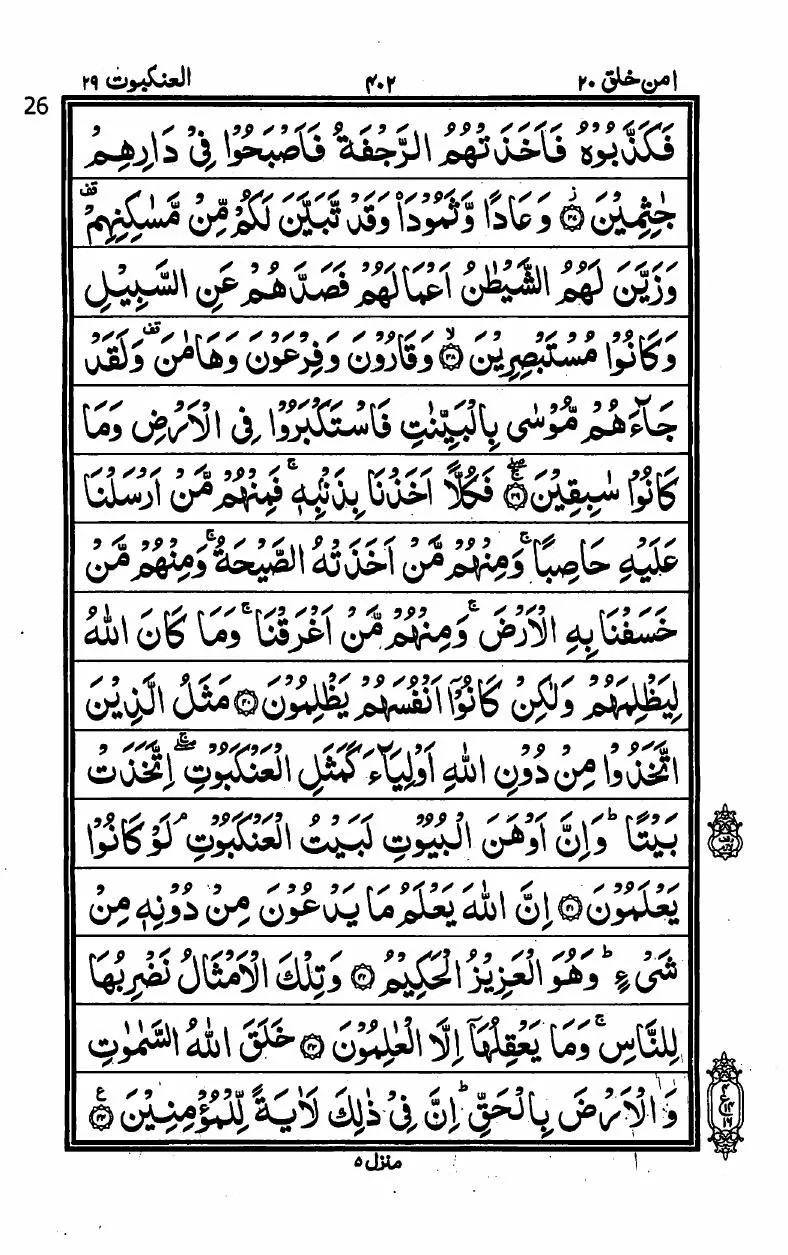 امن خلق ۲۰ ۴۰۲ العنكبوت ۲۹
26
فَكَذَّبُوْهُ فَاَخَذَتْهُمُ الرَّجْفَةُ فَاَصْبَحُوْا فِيْ دَارِهِمْ
جٰثِمِيْنَ ۙ۝۳۷ وَعَادًا وَّثَمُوْدَا۟ وَقَدْ تَّبَيَّنَ لَكُمْ مِّنْ مَّسٰكِنِهِمْ ۫قف
وَزَيَّنَ لَهُمُ الشَّيْطٰنُ اَعْمَالَهُمْ فَصَدَّهُمْ عَنِ السَّبِيْلِ
وَكَانُوْا مُسْتَبْصِرِيْنَ ۙ۝۳۸ وَقَارُوْنَ وَفِرْعَوْنَ وَهَامٰنَ ۫قف وَلَقَدْ
جَآءَهُمْ مُّوْسٰى بِالْبَيِّنٰتِ فَاسْتَكْبَرُوْا فِى الْاَرْضِ وَمَا
كَانُوْا سٰبِقِيْنَ ۚۖ۝۳۹ فَكُلًّا اَخَذْنَا بِذَنْۢبِهٖ ۚ فَمِنْهُمْ مَّنْ اَرْسَلْنَا
عَلَيْهِ حَاصِبًا ۚ وَمِنْهُمْ مَّنْ اَخَذَتْهُ الصَّيْحَةُ ۚ وَمِنْهُمْ مَّنْ
خَسَفْنَا بِهِ الْاَرْضَ ۚ وَمِنْهُمْ مَّنْ اَغْرَقْنَا ۚ وَمَا كَانَ اللّٰهُ
لِيَظْلِمَهُمْ وَلٰكِنْ كَانُوْۤا اَنْفُسَهُمْ يَظْلِمُوْنَ ۝۴۰ مَثَلُ الَّذِيْنَ
اتَّخَذُوْا مِنْ دُوْنِ اللّٰهِ اَوْلِيَآءَ كَمَثَلِ الْعَنْكَبُوْتِ ۚۖ اِتَّخَذَتْ
بَيْتًا ؕ وَاِنَّ اَوْهَنَ الْبُيُوْتِ لَبَيْتُ الْعَنْكَبُوْتِ ۘ لَوْ كَانُوْا
يَعْلَمُوْنَ ۝۴۱ اِنَّ اللّٰهَ يَعْلَمُ مَا يَدْعُوْنَ مِنْ دُوْنِهٖ مِنْ
شَىْءٍ ؕ وَهُوَ الْعَزِيْزُ الْحَكِيْمُ ۝۴۲ وَتِلْكَ الْاَمْثَالُ نَضْرِبُهَا
لِلنَّاسِ ۚ وَمَا يَعْقِلُهَاۤ اِلَّا الْعٰلِمُوْنَ ۝۴۳ خَلَقَ اللّٰهُ السَّمٰوٰتِ
وَالْاَرْضَ بِالْحَقِّ ؕ اِنَّ فِيْ ذٰلِكَ لَاٰيَةً لِّلْمُؤْمِنِيْنَ ۝۴۴ ع
۴
۱۴
۱۶
منزل ۵